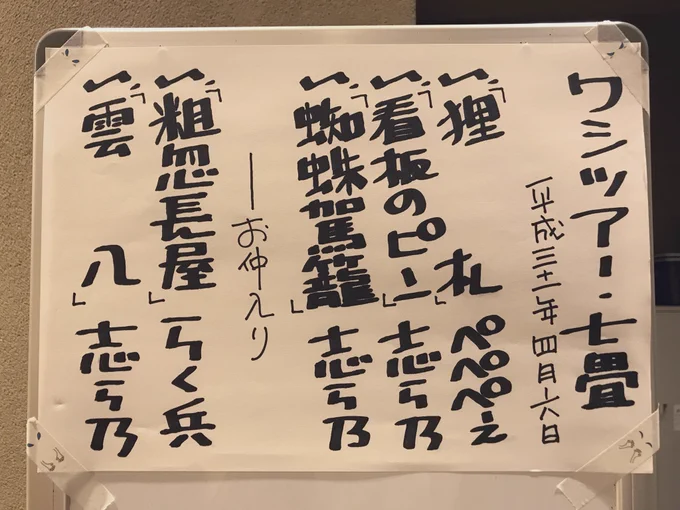 ワシツアー・七畳
平成三十一年四月六日
一、「狸札」 ぺぺぺぺえ
一、「看板のピン」 志ら乃
一、「蜘蛛駕籠」 志ら乃
―お仲入り
一、「粗忽長屋」 らく兵
一、「雲八」 志ら乃